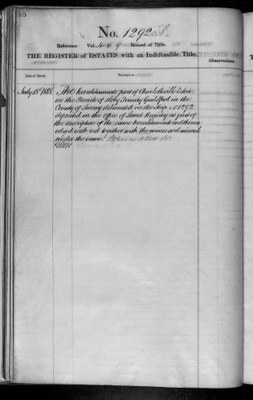 No. 1292
Reference Vol. Record of Title.
THE REGISTER of ESTATES with an Indefeasible Title.
Date of Entry. Description. Observations.
July 13th 1868 The hereditaments part of Charlotteville Estate
in the Parish of Holy Trinity Guildford in the
County of Surrey delineated on the Map No 1292
deposited in the Office of Land Registry as part of
the description of the same hereditaments and thereon
edged with red together with the mines and minerals
under the same.